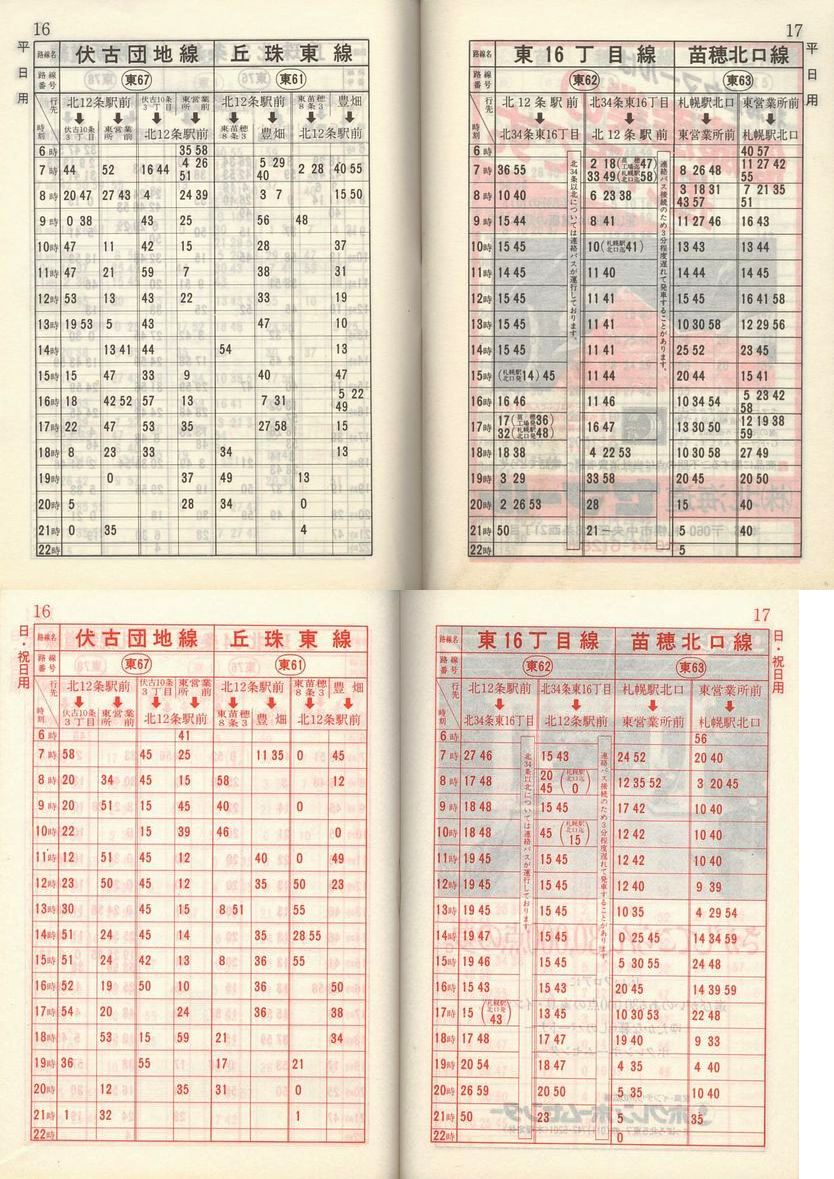 16
平日用
路線名 伏古団地線 丘珠東線
路線番号 東67 東61
行先 北12条駅前 伏古10条3丁目 東営業所前 北12条駅前 東苗穂8条3 豊畑
時刻 伏古10条3丁目 東営業所前 北12条駅前 東苗穂8条3 豊畑 北12条駅前
6時 35 58
7時 44 52 16 44 4 26 51 5 29 40 2 28 40 55
8時 20 47 27 43 4 24 39 3 7 15 50
9時 0 38 43 25 56 48
10時 47 11 42 15 28 37
11時 47 21 59 7 38 31
12時 53 13 43 22 33 19
13時 19 53 5 43 47 10
14時 13 41 44 54 13
15時 15 47 33 9 40 47
16時 18 42 52 57 13 7 31 5 22 49
17時 22 47 53 35 27 58 15
18時 8 23 33 34 13
19時 0 37 49 13
20時 5 28 34 0
21時 0 35 4
22時
17
平日用
路線名 東16丁目線 苗穂北口線
路線番号 東62 東63
行先 北12条駅前 北34条東16丁目 札幌駅北口 東営業所前
時刻 北34条東16丁目 北12条駅前 東営業所前 札幌駅北口
北34条以北については連絡バスが運行しております。
連絡バス接続のため3分程度遅れて発車することがあります。
6時 40 57
7時 36 55 2 18 (47) 33 49 (札幌駅北口迄58) 8 26 48 11 27 42 55
8時 10 40 6 23 38 3 18 31 43 57 7 21 35 51
9時 15 44 8 41 11 27 46 16 43
10時 15 45 10 (札幌駅北口迄41) 13 43 13 44
11時 14 45 11 40 14 44 14 45
12時 15 45 11 41 15 45 16 41 58
13時 15 45 11 41 10 30 58 12 29 56
14時 15 45 11 41 25 52 23 45
15時 (札幌駅北口発14) 45 11 44 20 44 15 41
16時 16 46 11 46 10 34 54 5 23 42 58
17時 17 (36) 32 (札幌駅北口発48) 16 47 13 30 50 12 19 38 59
18時 18 38 4 22 53 10 30 58 27 49
19時 3 29 33 58 20 45 20 50
20時 2 26 53 28 15 40
21時 50 21 5 40
22時 5
16
日・祝日用
路線名 伏古団地線 丘珠東線
路線番号 東67 東61
行先 北12条駅前 伏古10条3丁目 東営業所前 北12条駅前 東苗穂8条3 豊畑
時刻 伏古10条3丁目 東営業所前 北12条駅前 東苗穂8条3 豊畑 北12条駅前
6時 41
7時 58 45 25 11 35 0 45
8時 20 34 45 15 58 12
9時 20 51 45 15 40 0
10時 22 15 39 46 0
11時 12 51 45 12 40 0 49
12時 23 50 45 12 35 50 23
13時 30 45 15 8 51 55
14時 51 24 45 14 35 28 55
15時 51 24 42 13 8 36 55
16時 52 19 50 10 36 50
17時 54 20 24 36 38
18時 53 15 59 21 34
19時 36 55 17 21
20時 12 35 31 0
21時 1 32 1
22時
17
日・祝日用
路線名 東16丁目線 苗穂北口線
路線番号 東62 東63
行先 北12条駅前 北34条東16丁目 札幌駅北口 東営業所前
時刻 北34条東16丁目 北12条駅前 東営業所前 札幌駅北口
北34条以北については連絡バスが運行しております。
連絡バス接続のため3分程度遅れて発車することがあります。
6時 56
7時 27 46 15 43 24 52 20 40
8時 17 48 20 45 (札幌駅北口迄0) 12 35 52 3 20 45
9時 18 48 15 45 17 42 10 40
10時 18 48 45 (札幌駅北口迄15) 12 42 10 40
11時 19 45 15 45 12 42 10 40
12時 19 45 15 45 12 40 9 39
13時 19 45 15 45 10 35 4 29 54
14時 19 47 15 45 0 25 45 14 34 59
15時 19 46 15 45 5 30 55 24 48
16時 15 43 15 43 20 45 14 39 59
17時 15 (札幌駅北口発43) 13 45 10 30 53 22 48
18時 17 48 17 47 19 40 9 33
19時 20 54 18 47 4 35 4 40
20時 26 59 20 50 5 35 10 40
21時 50 23 5 35
22時 0